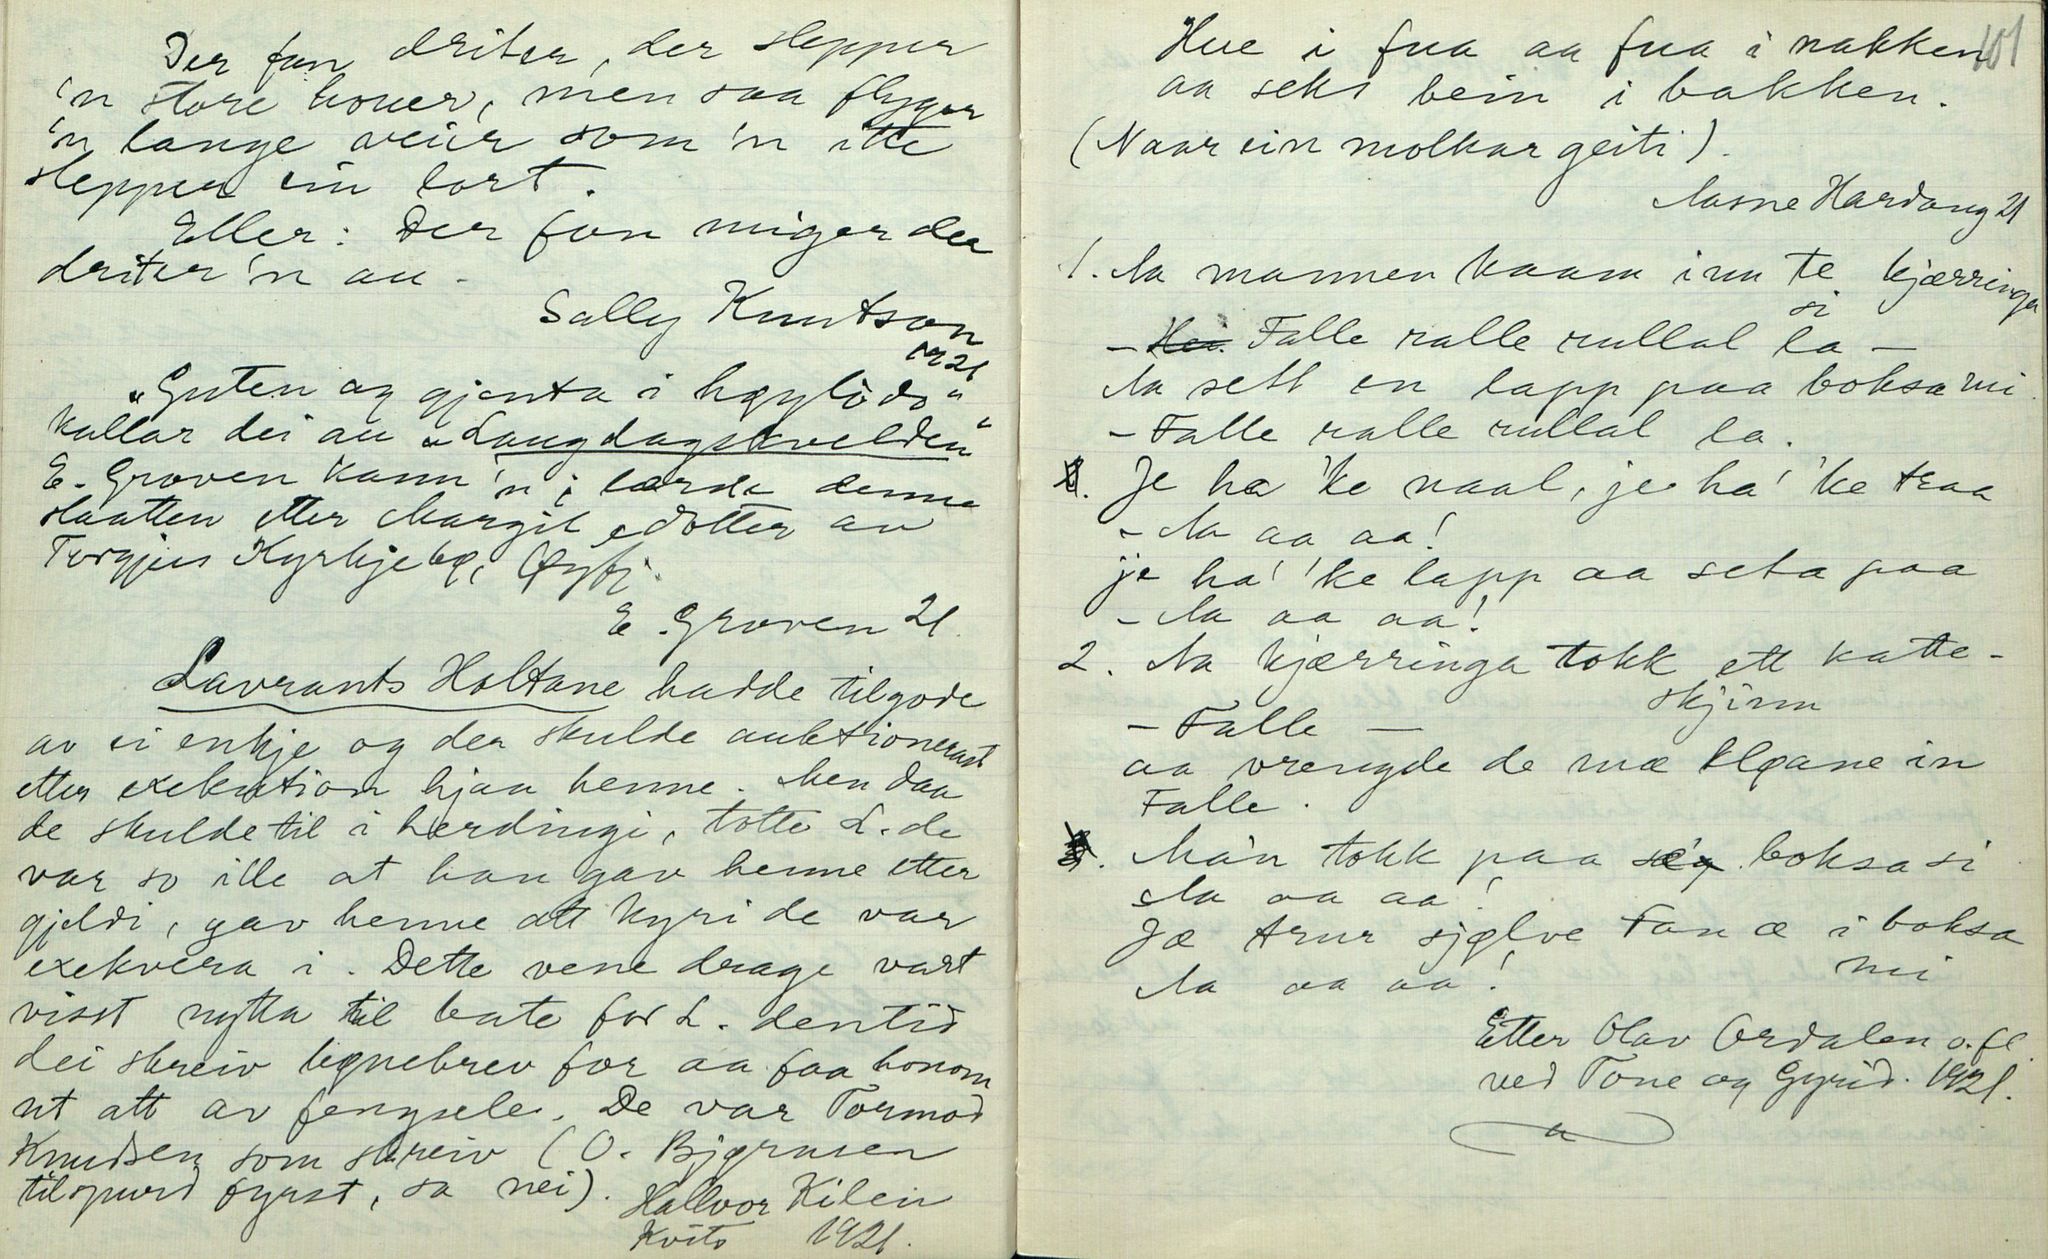 Der fan driter, der slepper
'n store houer, men saa flyger
'n lange veier som 'n itte
slepper ein lort.
Eller: Der fan miger der
driter 'n au -
Sally Knutson
1921
"Guten og gjenta i høylødo"
kallar dei au "Laugdagskvelden"
E. Groven kann 'n; lærde denne
slaatten etter Margit, dotter av
Turgjus Kyrkjebø, Øyfj.
E. Groven 21.
Lavrants Holtane hadde tilgode
av ei enkje og der skulde auktionerast
etter exekution hjaa henne. Men daa
de skulde til i herdingi, totte L. de
var so ille at han gav henne etter
gjeldi, gav henne att kyri de var
exekvera i. Dette vene drage vart
visst nytta til bate for L. dentid
dei skreiv bønebrev for aa faa honom
ut att av fengsele. De var Tormod
Knudsen som skreiv (O. Bjørnsen
tilspurd fyrst, sa nei). Hallvor Kilen
Kvits 1921.
101
Hue i fua aa fua i nakken
aa seks bein i bakken.
(Naar ein molkar geiti).
Aasne Hardang 21
1. Aa mannen kaam inn te kjærringa
si
- Falle ralle rullal la -
Aa sett en lapp paa boksa mi
- Falle ralle rullal la.
Je ha 'ke naal, je ha' 'ke traa
- Aa aa aa!
je ha' 'ke lapp aa seta paa
- Aa aa aa!
2. Aa kjærringa tokk ett katte-
skjinn
- Falle -
aa vrengde de mæ kløane in
Falle.
Ma'n tokk paa seg boksa si
Aa aa aa!
Jæ trur sjølve Fan æ i boksa
mi
Aa aa aa!
Etter Olav Ordalen o. fl.
ved Tone og Gyrid. 1921.